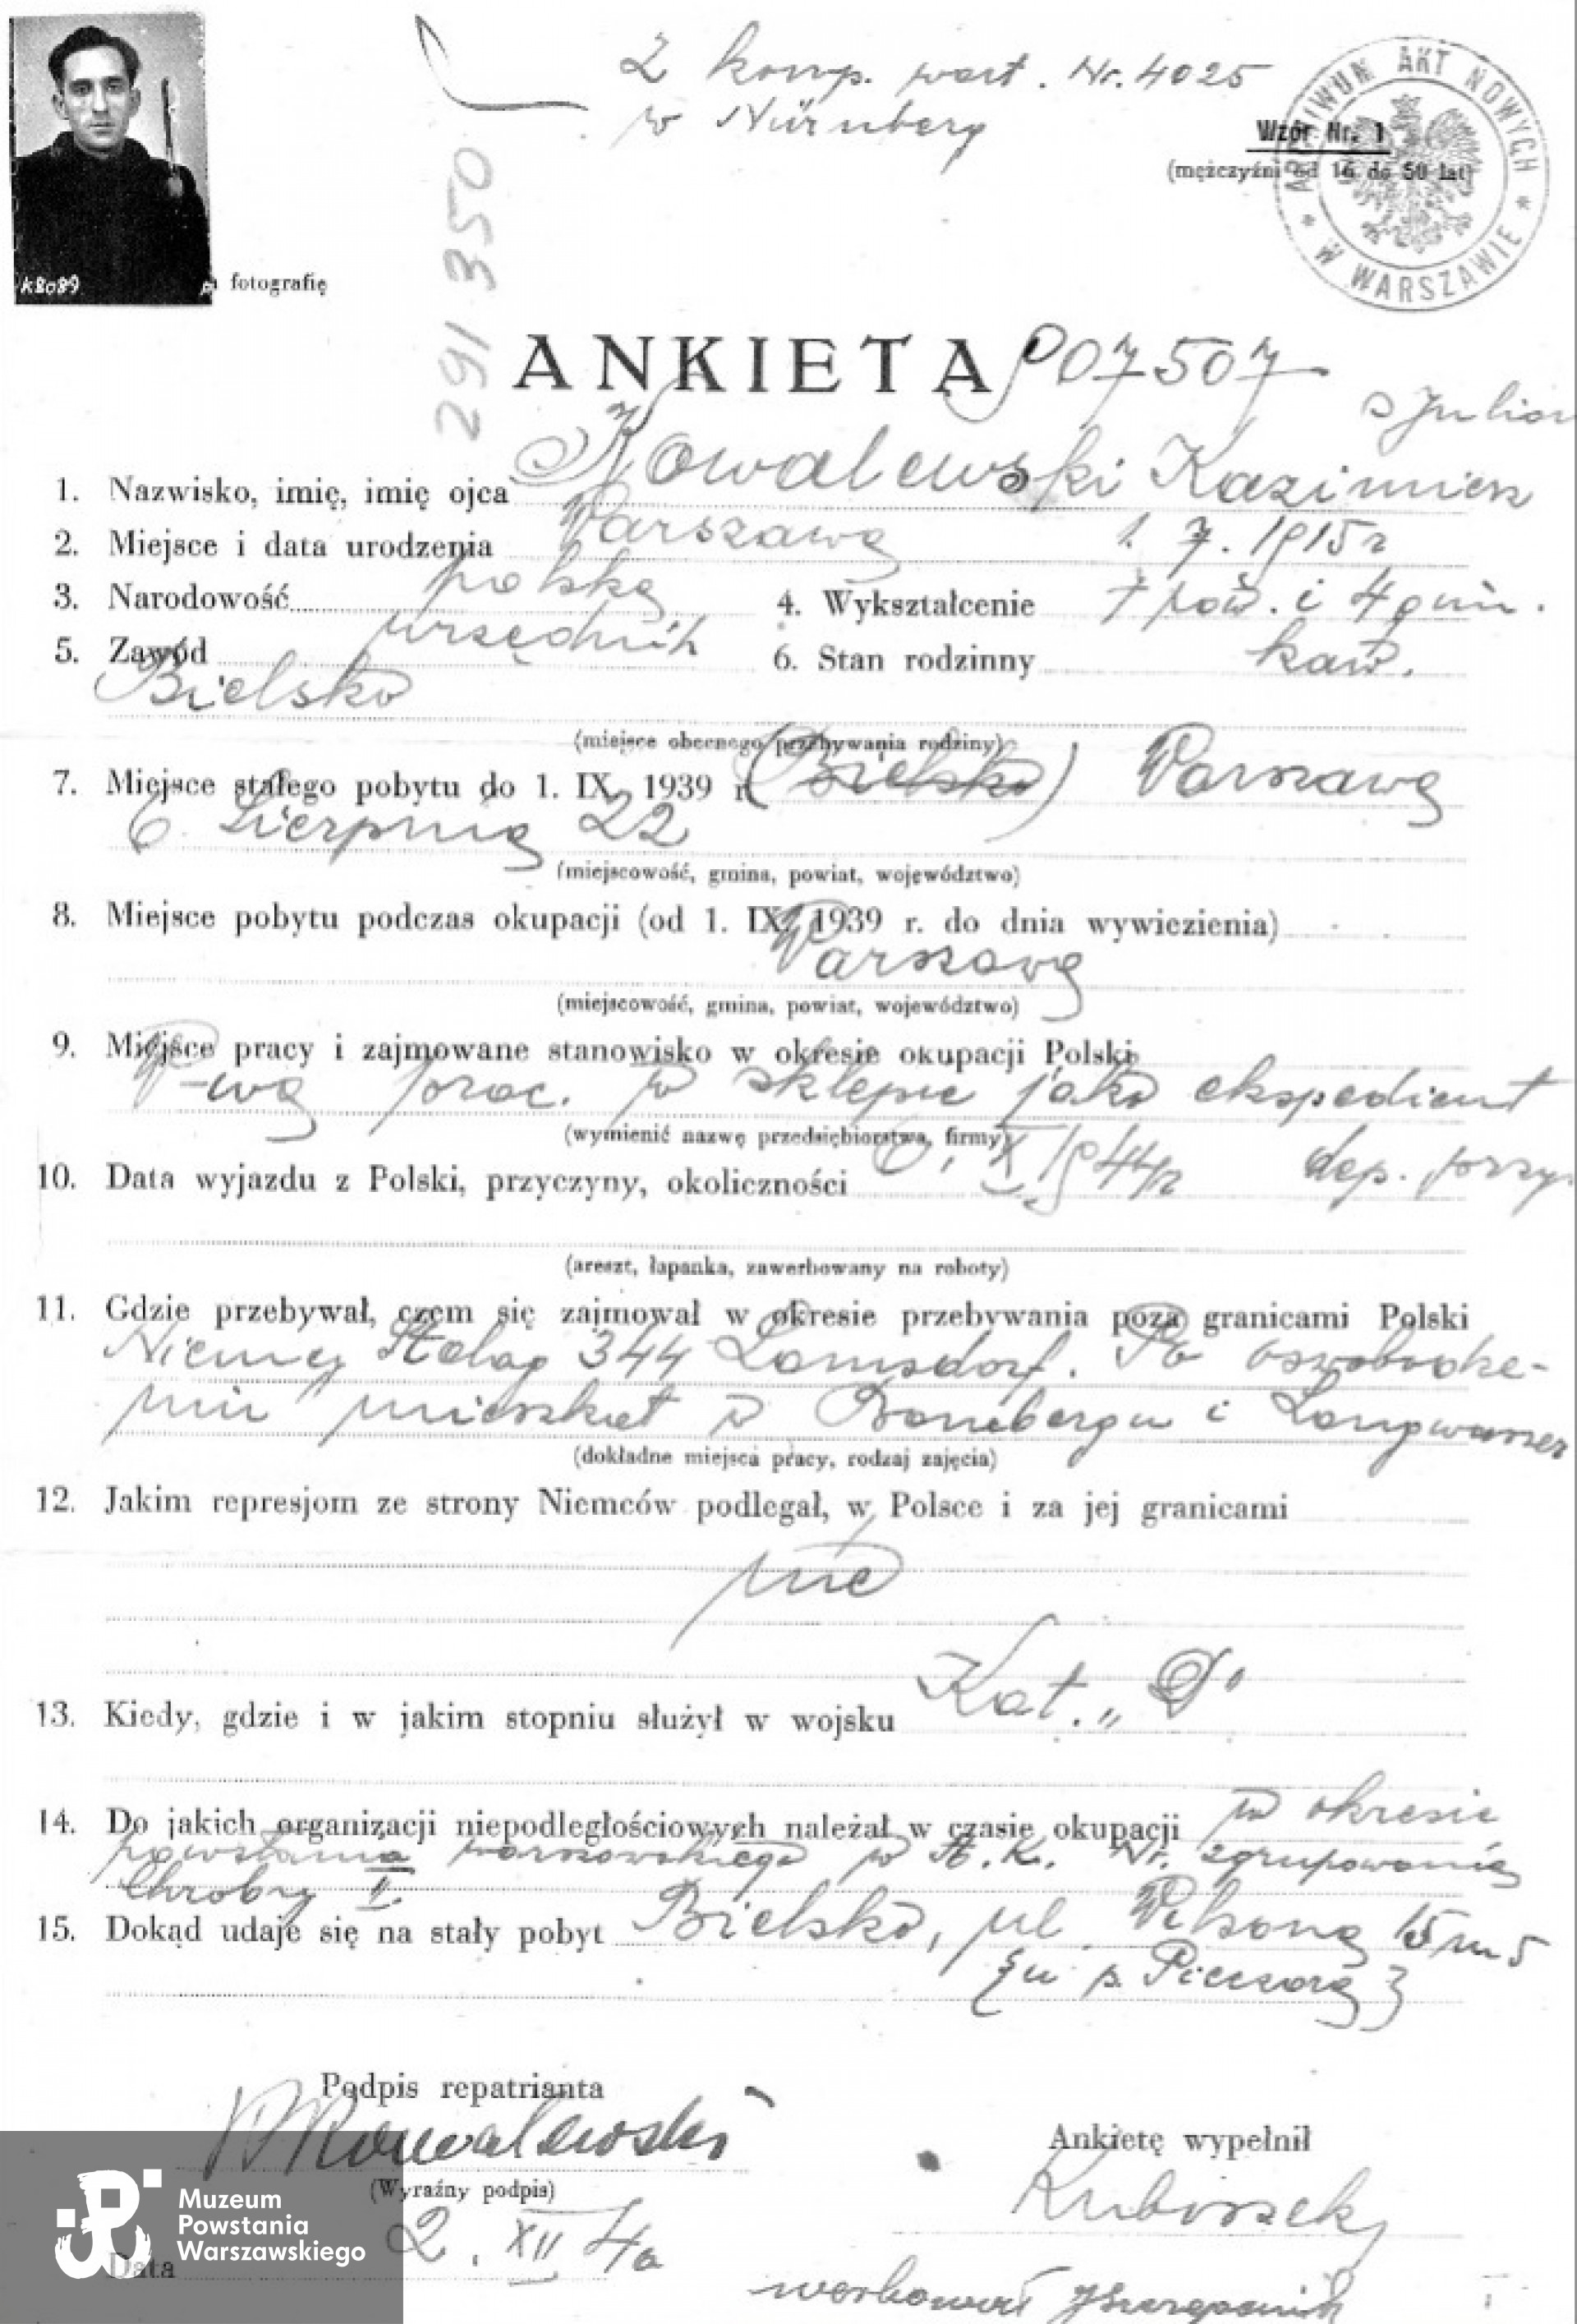 Z komp. wart. Nr. 4025
w Nürnberg
ARCHIWUM AKT NOWYCH * W WARSZAWIE *
Wzór Nr. 1
(mężczyźni od 16 do 50 lat)
k8089
fotografię
291 350
ANKIETA 907507
s Julian
1. Nazwisko, imię, imię ojca Kowalewski Kazimierz
2. Miejsce i data urodzenia Warszawa 1. 7. 1915 r
3. Narodowość polska 4. Wykształcenie 7 pow. i 4 gim.
5. Zawód urzędnik 6. Stan rodzinny kaw.
Bielsko
(miejsce obecnego przebywania rodziny)
7. Miejsce stałego pobytu do 1. IX. 1939 r. (Bielsko) Warszawa
6. Sierpnia 22
(miejscowość, gmina, powiat, województwo)
8. Miejsce pobytu podczas okupacji (od 1. IX. 1939 r. do dnia wywiezienia)
Warszawa
(miejscowość, gmina, powiat, województwo)
9. Miejsce pracy i zajmowane stanowisko w okresie okupacji Polski
W-wa prac. w sklepie jako ekspedient
(wymienić nazwę przedsiębiorstwa, firmy)
10. Data wyjazdu z Polski, przyczyny, okoliczności 6. X 1944 r dep. przy.
(areszt, łapanka, zawerbowany na roboty)
11. Gdzie przebywał, czem się zajmował w okresie przebywania poza granicami Polski
Niemcy Stalag 344 Lamsdorf. Po oswobodze-
niu mieszkał w Bambergu i Langwasser
(dokładne miejsca pracy, rodzaj zajęcia)
12. Jakim represjom ze strony Niemców podlegał, w Polsce i za jej granicami
nie
13. Kiedy, gdzie i w jakim stopniu służył w wojsku Kat. „D"
14. Do jakich organizacji niepodległościowych należał w czasie okupacji w okresie
powstania warszawskiego w A.K. Nr. zgrupowania
Chrobry I.
15. Dokąd udaje się na stały pobyt Bielsko, pl. Wilsona 15 m 5
{u p. Pieczara}
Podpis repatrianta
Kowalewski
(Wyraźny podpis)
Ankietę wypełnił
Data 2. XII 46
Muzeum
Powstania
Warszawskiego